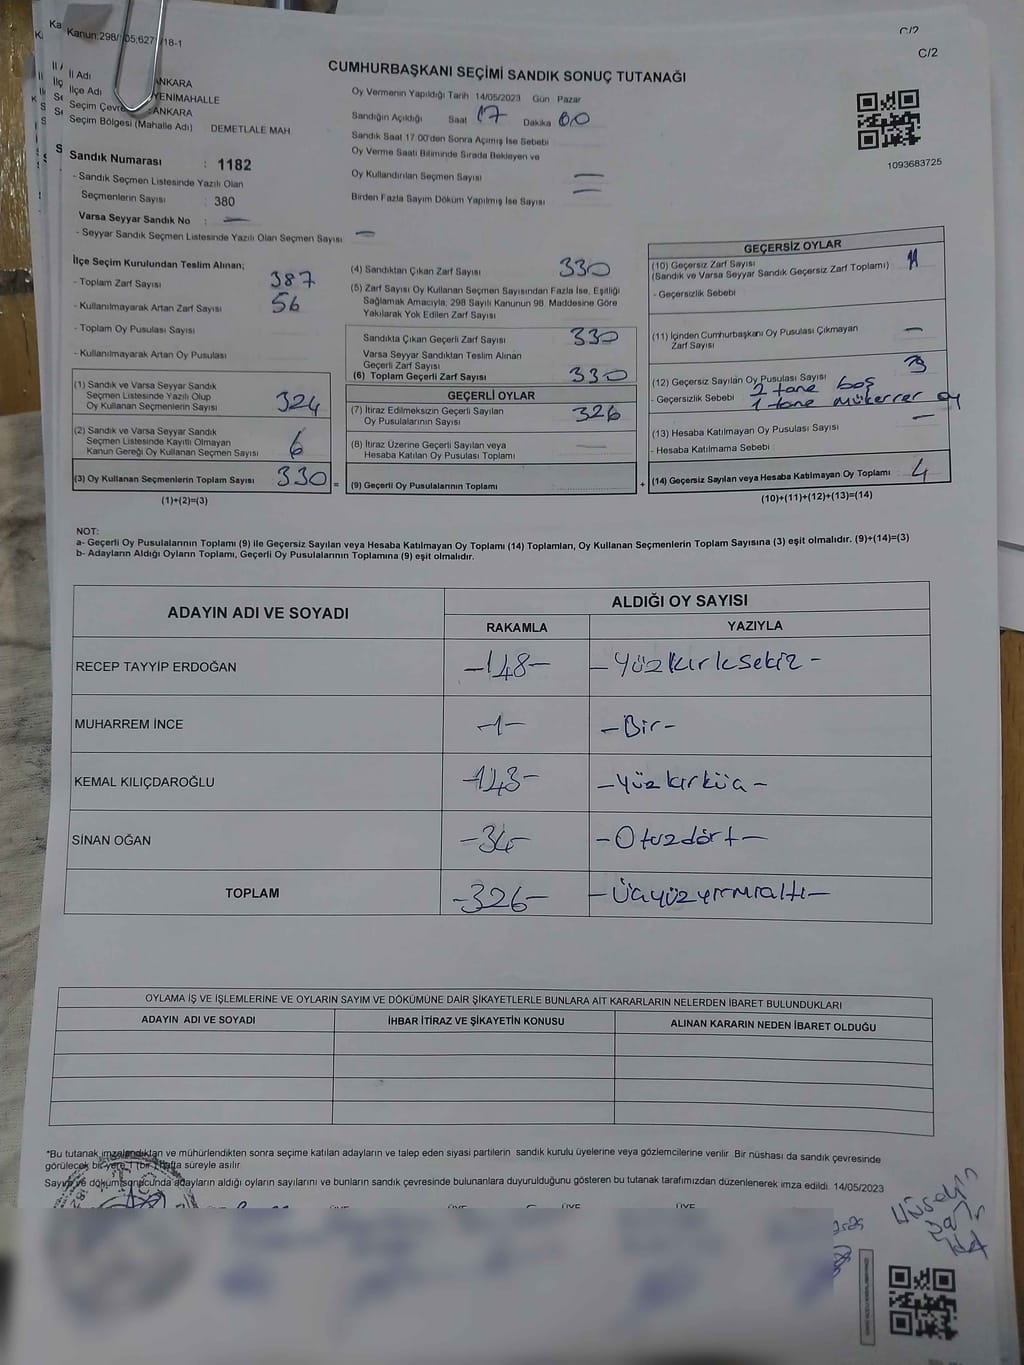 C/2
Kanun:298/105;627 /18-1
C/2
CUMHURBAŞKANI SEÇİMİ SANDIK SONUÇ TUTANAĞI
İl Adı ANKARA
İlçe Adı YENİMAHALLE
Seçim Çevre : ANKARA
Seçim Bölgesi (Mahalle Adı) DEMETLALE MAH
Sandık Numarası : 1182
- Sandık Seçmen Listesinde Yazılı Olan
Seçmenlerin Sayısı : 380
Varsa Seyyar Sandık No : —
- Seyyar Sandık Seçmen Listesinde Yazılı Olan Seçmen Sayısı —
Oy Vermenin Yapıldığı Tarih 14/05/2023 Gün Pazar
Sandığın Açıldığı Saat 17 Dakika 00
Sandık Saat 17:00'den Sonra Açılmış İse Sebebi
Oy Verme Saati Bitiminde Sırada Bekleyen ve
Oy Kullandırılan Seçmen Sayısı —
Birden Fazla Sayım Döküm Yapılmış İse Sayısı —
1093683725
İlçe Seçim Kurulundan Teslim Alınan;
- Toplam Zarf Sayısı 387
- Kullanılmayarak Artan Zarf Sayısı 56
- Toplam Oy Pusulası Sayısı
- Kullanılmayarak Artan Oy Pusulası
(1) Sandık ve Varsa Seyyar Sandık
Seçmen Listesinde Yazılı Olup
Oy Kullanan Seçmenlerin Sayısı 324
(2) Sandık ve Varsa Seyyar Sandık
Seçmen Listesinde Kayıtlı Olmayan
Kanun Gereği Oy Kullanan Seçmen Sayısı 6
(3) Oy Kullanan Seçmenlerin Toplam Sayısı 330 =
(1)+(2)=(3)
(4) Sandıktan Çıkan Zarf Sayısı 330
(5) Zarf Sayısı Oy Kullanan Seçmen Sayısından Fazla İse, Eşitliği
Sağlamak Amacıyla, 298 Sayılı Kanunun 98. Maddesine Göre
Yakılarak Yok Edilen Zarf Sayısı
Sandıkta Çıkan Geçerli Zarf Sayısı 330
Varsa Seyyar Sandıktan Teslim Alınan
Geçerli Zarf Sayısı
(6) Toplam Geçerli Zarf Sayısı 330
GEÇERLİ OYLAR
(7) İtiraz Edilmeksizin Geçerli Sayılan
Oy Pusulalarının Sayısı 326
(8) İtiraz Üzerine Geçerli Sayılan veya
Hesaba Katılan Oy Pusulası Toplamı —
(9) Geçerli Oy Pusulalarının Toplamı +
GEÇERSİZ OYLAR
(10) Geçersiz Zarf Sayısı
(Sandık ve Varsa Seyyar Sandık Geçersiz Zarf Toplamı)
- Geçersizlik Sebebi
(11) İçinden Cumhurbaşkanı Oy Pusulası Çıkmayan
Zarf Sayısı —
(12) Geçersiz Sayılan Oy Pusulası Sayısı 3
- Geçersizlik Sebebi 2 tane boş
1 tane mükerrer oy
(13) Hesaba Katılmayan Oy Pusulası Sayısı —
- Hesaba Katılmama Sebebi
(14) Geçersiz Sayılan veya Hesaba Katılmayan Oy Toplamı 4
(10)+(11)+(12)+(13)=(14)
NOT:
a- Geçerli Oy Pusulalarının Toplamı (9) ile Geçersiz Sayılan veya Hesaba Katılmayan Oy Toplamı (14) Toplamları, Oy Kullanan Seçmenlerin Toplam Sayısına (3) eşit olmalıdır. (9)+(14)=(3)
b- Adayların Aldığı Oyların Toplamı, Geçerli Oy Pusulalarının Toplamına (9) eşit olmalıdır.
ADAYIN ADI VE SOYADI ALDIĞI OY SAYISI
RAKAMLA YAZIYLA
RECEP TAYYİP ERDOĞAN -148- -Yüzkırksekiz-
MUHARREM İNCE -1- -Bir-
KEMAL KILIÇDAROĞLU -143- -Yüzkırküç-
SİNAN OĞAN -34- -Otuzdört-
TOPLAM -326- -Üçyüzyirmialtı-
OYLAMA İŞ VE İŞLEMLERİNE VE OYLARIN SAYIM VE DÖKÜMÜNE DAİR ŞİKAYETLERLE BUNLARA AİT KARARLARIN NELERDEN İBARET BULUNDUKLARI
ADAYIN ADI VE SOYADI İHBAR İTİRAZ VE ŞİKAYETİN KONUSU ALINAN KARARIN NEDEN İBARET OLDUĞU
*Bu tutanak imzalandıktan ve mühürlendikten sonra seçime katılan adayların ve talep eden siyasi partilerin sandık kurulu üyelerine veya gözlemcilerine verilir. Bir nüshası da sandık çevresinde
görülecek bir yere 1 (bir) hafta süreyle asılır.
Sayım ve döküm sonucunda adayların aldığı oyların sayılarını ve bunların sandık çevresinde bulunanlara duyurulduğunu gösteren bu tutanak tarafımızdan düzenlenerek imza edildi. 14/05/2023
ÜYE ÜYE ÜYE ÜYE